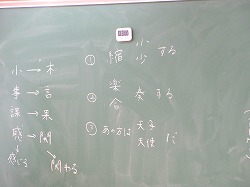 小→木
事→言
課→果
感→関
感じる
関わる
① 縮 小 少 する
② 楽 合 奏 する
③ あの方は 天子 天使 だ